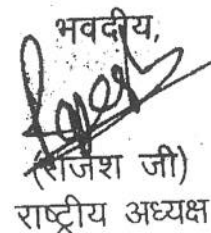 भवदीय,
(राजेश जी)
राष्ट्रीय अध्यक्ष